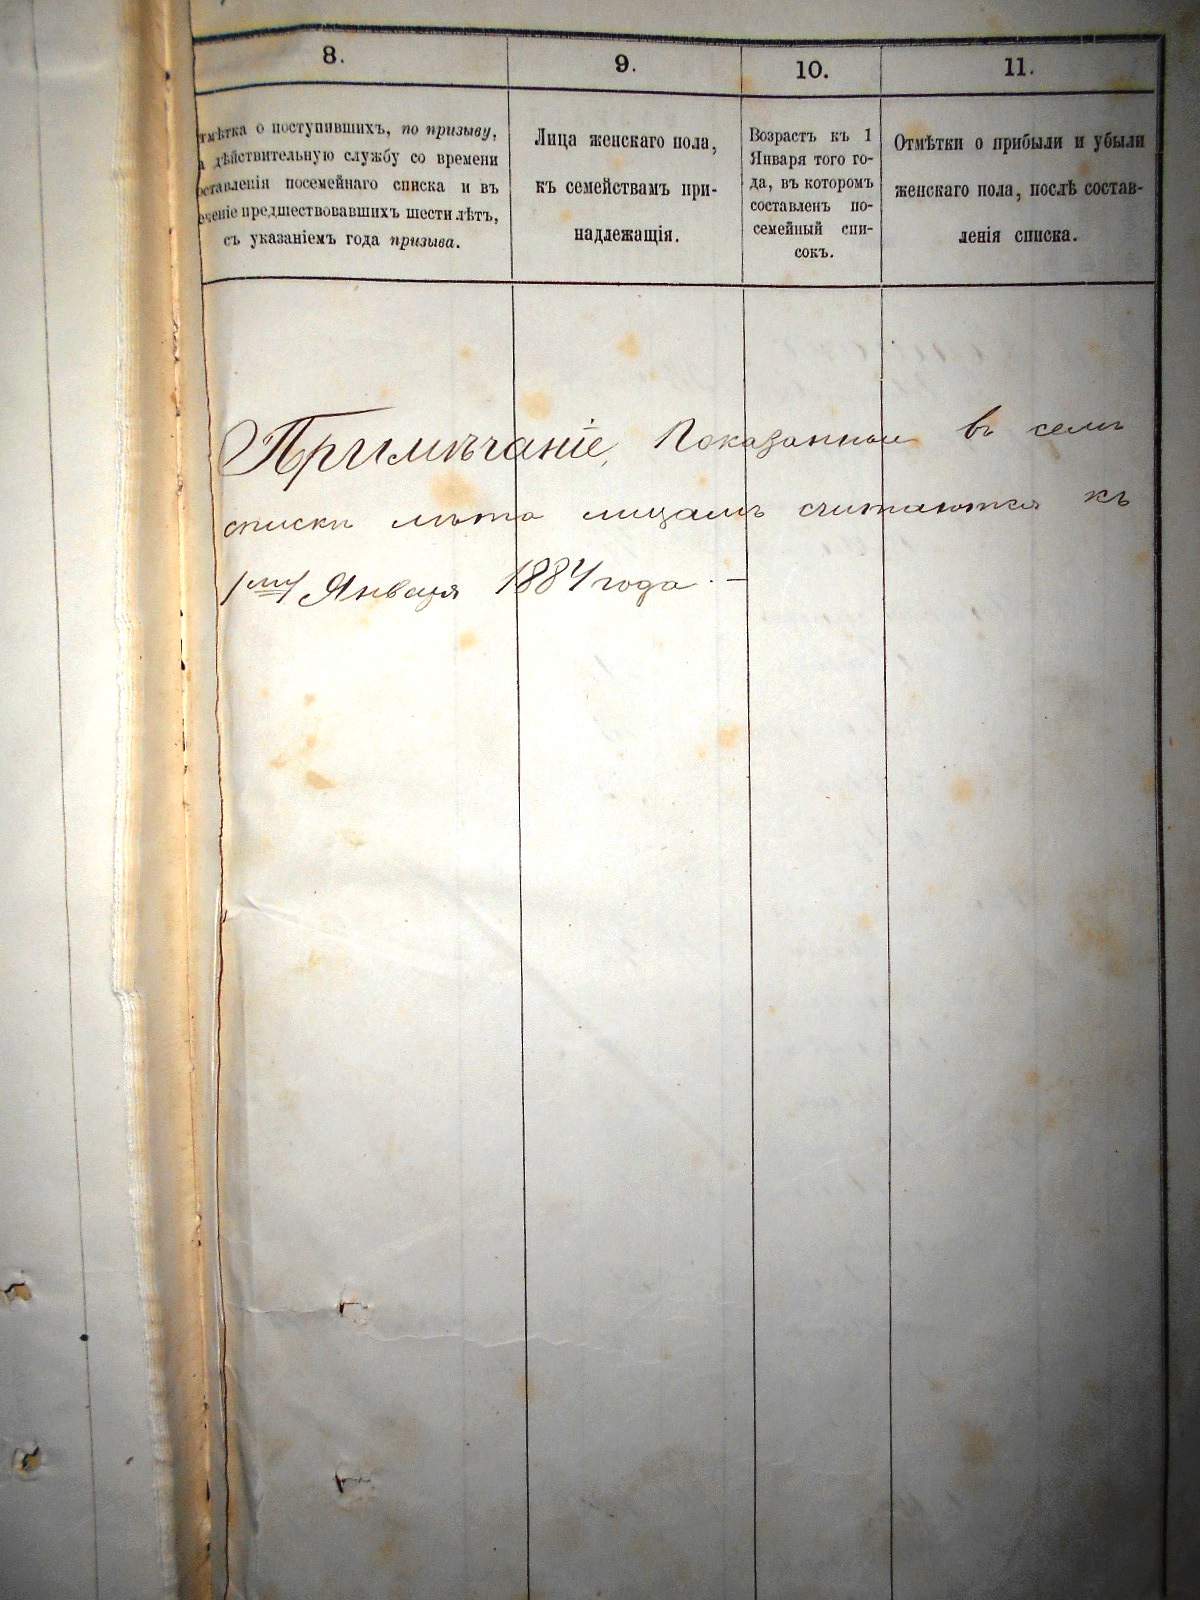 8.
9.
10.
11.
тмѣтка о поступившихъ, по призыву,
а дѣйствительную службу со времени
оставленія посемейнаго списка и въ
еченіе предшествовавшихъ шести лѣтъ,
съ указаніемъ года призыва.
Лица женскаго пола,
къ семействамъ при-
надлежащія.
Возрастъ къ 1
Января того го-
да, въ которомъ
составленъ по-
семейный спи-
сокъ.
Отмѣтки о прибыли и убыли
женскаго пола, послѣ состав-
ленія списка.
Примѣчаніе, Показанныя въ семъ
спискѣ лѣта лицамъ считаются къ
1му Января 1884 года. —